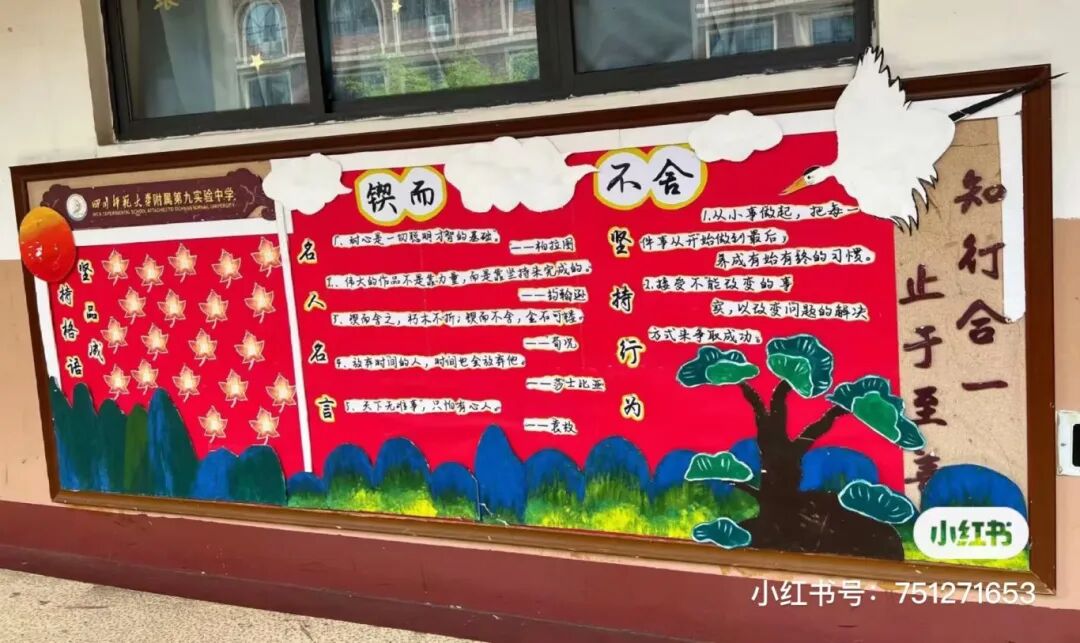 四川师范大学附属第九实验中学
坚持品成
格语
锲而
不舍
名人名言
1、耐心是一切聪明才智的基础。
——柏拉图
2、伟大的作品不是靠力量，而是靠坚持来完成的。
——约翰逊
3、锲而舍之，朽木不折；锲而不舍，金石可镂。
——荀况
4、放弃时间的人，时间也会放弃他。
——莎士比亚
5、天下无难事，只怕有心人。
——袁枚
坚持行为
1.从小事做起，把每一
件事从开始做到最后，
养成有始有终的习惯。
2.接受不能改变的事
实，以改变问题的解决
方式来争取成功。
知行合一
止于至善
小红书
小红书号：751271653